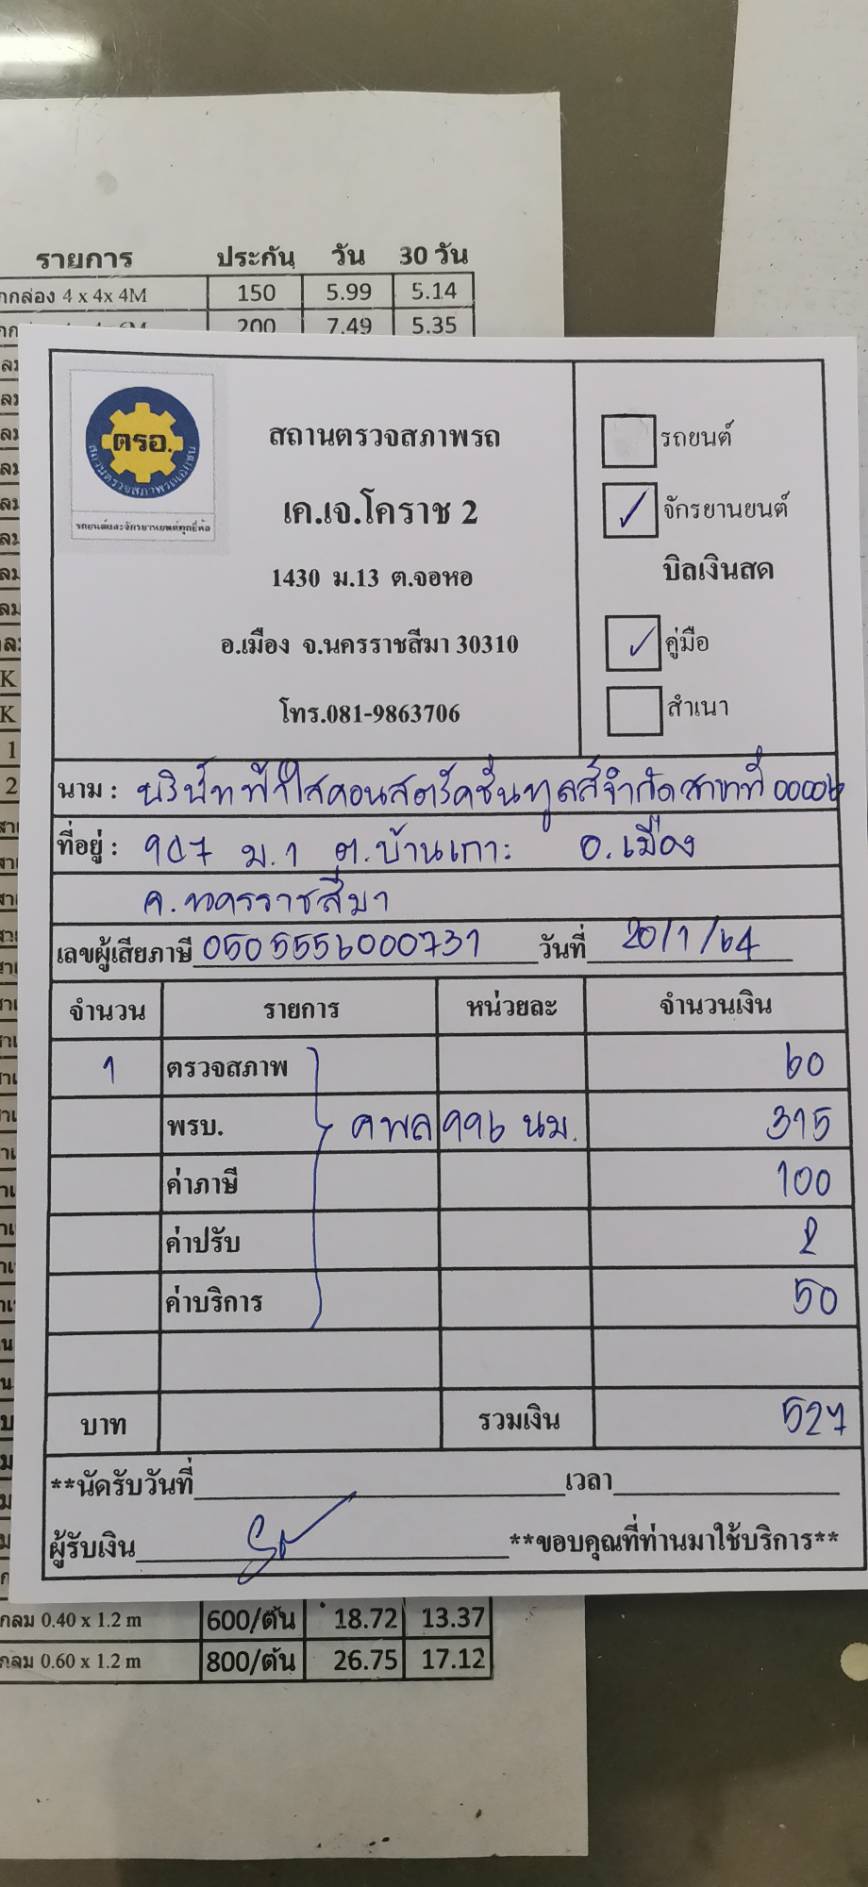 รายการ ประกัน วัน 30 วัน
กกล่อง 4 x 4x 4M 150 5.99 5.14
200 7.49 5.35
ตรอ.
สถานตรวจสภาพรถเอกชน
รถยนต์และจักรยานยนต์ทุกยี่ห้อ
สถานตรวจสภาพรถ
เค.เจ.โคราช 2
1430 ม.13 ต.จอหอ
อ.เมือง จ.นครราชสีมา 30310
โทร.081-9863706
รถยนต์
✓ จักรยานยนต์
บิลเงินสด
✓ คู่มือ
สำเนา
นาม : บริษัท คอนสตรัคชั่นทูลส์จำกัด สาขาที่ 00006
ที่อยู่ : ม.1 ต.บ้านเกาะ อ.เมือง
จ.นครราชสีมา
เลขผู้เสียภาษี 0505556000731 วันที่ 20/1/64
จำนวน รายการ หน่วยละ จำนวนเงิน
1 ตรวจสภาพ 60
พรบ. 996 นม. 315
ค่าภาษี 100
ค่าปรับ 2
ค่าบริการ 50
บาท รวมเงิน 527
**นัดรับวันที่ เวลา
ผู้รับเงิน **ขอบคุณที่ท่านมาใช้บริการ**
กลม 0.40 x 1.2 m 600/ต้น 18.72 13.37
กลม 0.60 x 1.2 m 800/ต้น 26.75 17.12